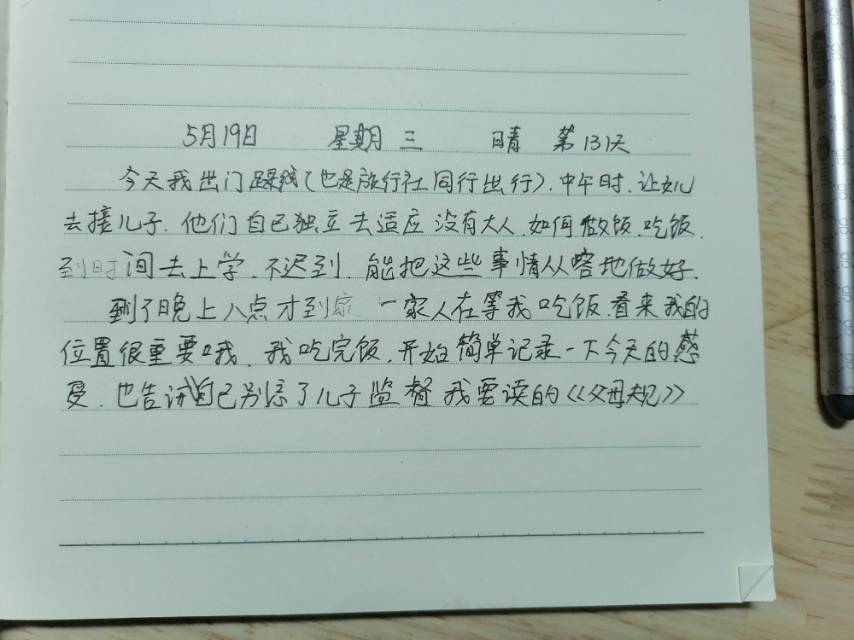 5月19日 星期三 晴 第131天
今天我出门踩线(也是旅行社同行出行).中午时.让女儿
去接儿子.他们自己独立去适应没有大人.如何做饭.吃饭.
到时间去上学.不迟到.能把这些事情从容地做好.
到了晚上八点才到家 一家人在等我吃饭.看来我的
位置很重要哦.我吃完饭.开始简单记录一下今天的感
受.也告诉自己别忘了儿子监督我要读的《父母规》